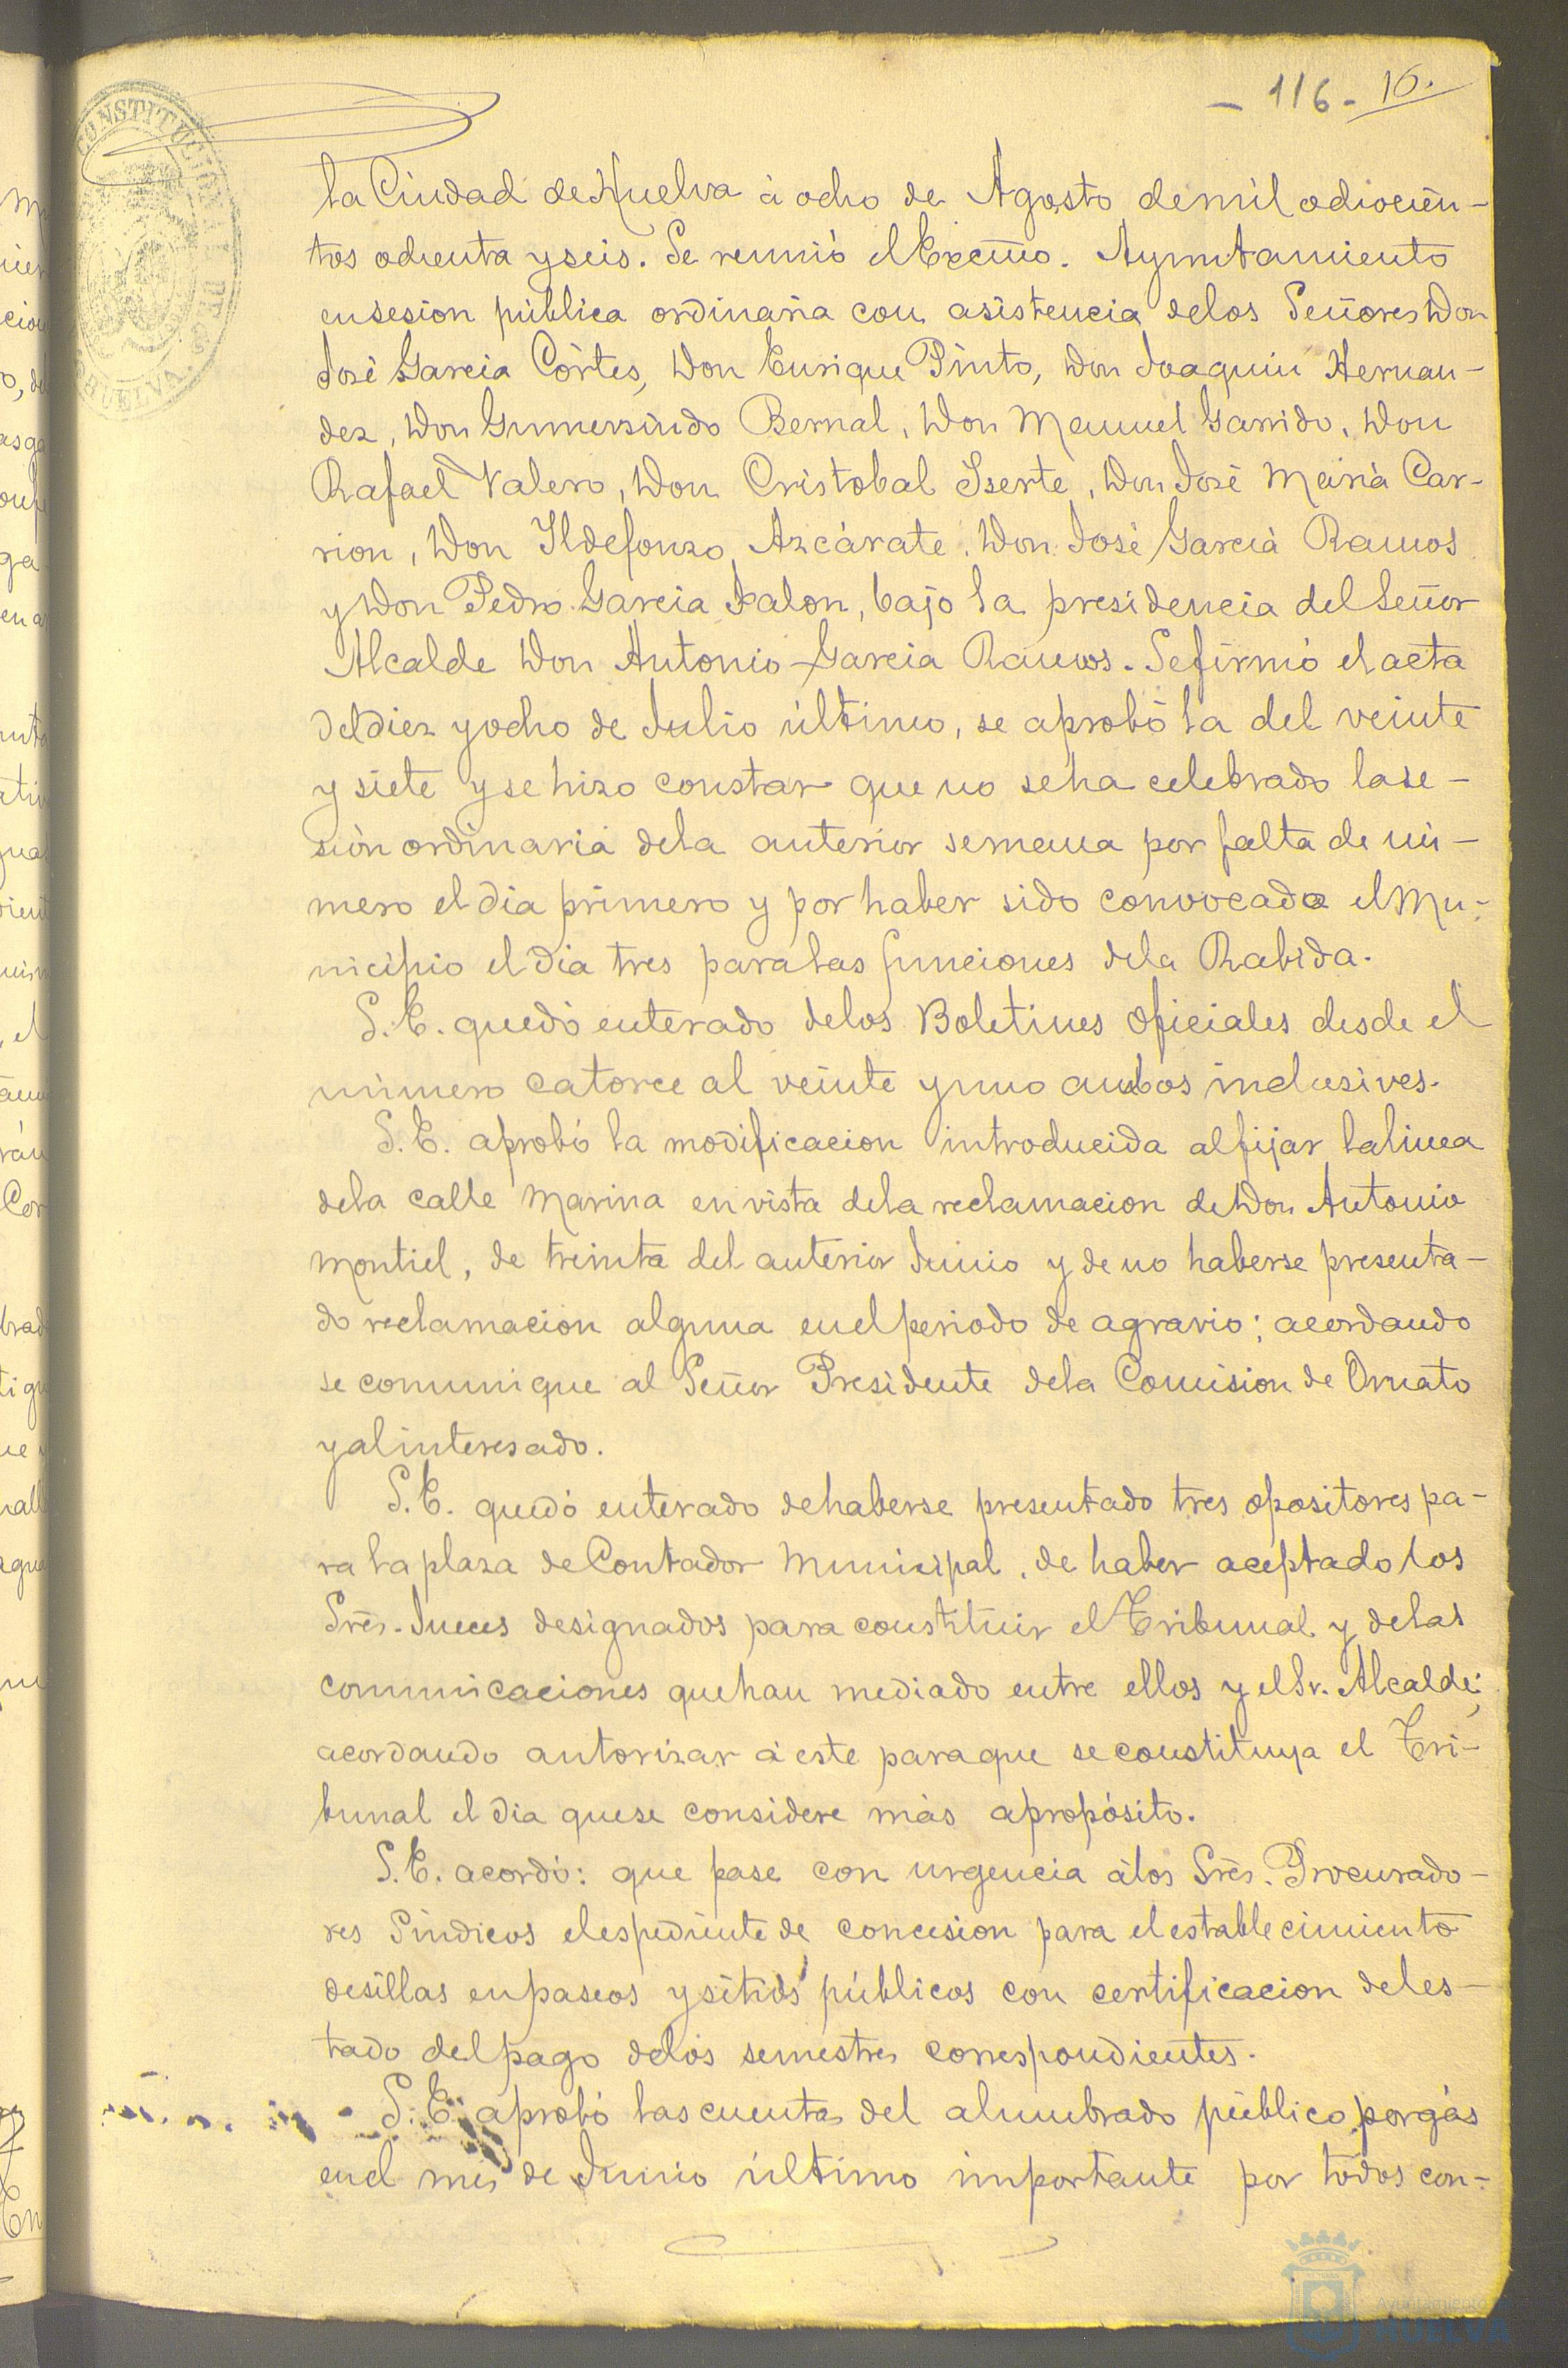 - 116 - 16.
CONSTITUCIONAL DE HUELVA.
la Ciudad de Huelva á ocho de Agosto de mil ochocien-
tos ochenta y seis. Se reunió el Excmo. Ayuntamiento
en sesion pública ordinaria con asistencia de los Señores Don
José Garcia Córtes, Don Enrique Pinto, Don Joaquin Hernan-
dez, Don Gumersindo Bernal, Don Manuel Garrido, Don
Rafael Valero, Don Cristobal Iserte, Don José Maria Car-
rion, Don Ildefonzo Azcárate, Don José Garcia Ramos
y Don Pedro Garcia Jalon, bajo la presidencia del Señor
Alcalde Don Antonio Garcia Ramos. Se firmó el acta
del diez y ocho de Julio último, se aprobó la del veinte
y siete y se hizo constar que no se ha celebrado la se-
sión ordinaria de la anterior semana por falta de nú-
mero el dia primero y por haber sido convocado el Mu-
nicipio el dia tres para las funciones de la Rabida.
S. E. quedó enterado de los Boletines oficiales desde el
número catorce al veinte y uno ambos inclusives.
S. E. aprobó la modificacion introducida al fijar la linea
de la calle Marina en vista de la reclamacion de Don Antonio
Montiel, de treinta del anterior Junio y de no haberse presenta-
do reclamacion alguna en el periodo de agravio; acordando
se comunique al Señor Presidente de la Comision de Ornato
y al interesado.
S. E. quedó enterado de haberse presentado tres opositores pa-
ra la plaza de Contador Municipal, de haber aceptado los
Sres. Jueces designados para constituir el Tribunal y de las
comunicaciones que han mediado entre ellos y el Sr. Alcalde;
acordando autorizar á este para que se constituya el Tri-
bunal el dia que se considere más apropósito.
S. E. acordó: que pase con urgencia á los Sres. Procurado-
res Síndicos el espediente de concesion para el establecimiento
de sillas en paseos y sitios públicos con certificacion del es-
tado del pago de los semestres correspondientes.
S. E. aprobó las cuentas del alumbrado público por gás
en el mes de Junio último importante por todos con-
Ayuntamiento
HUELVA